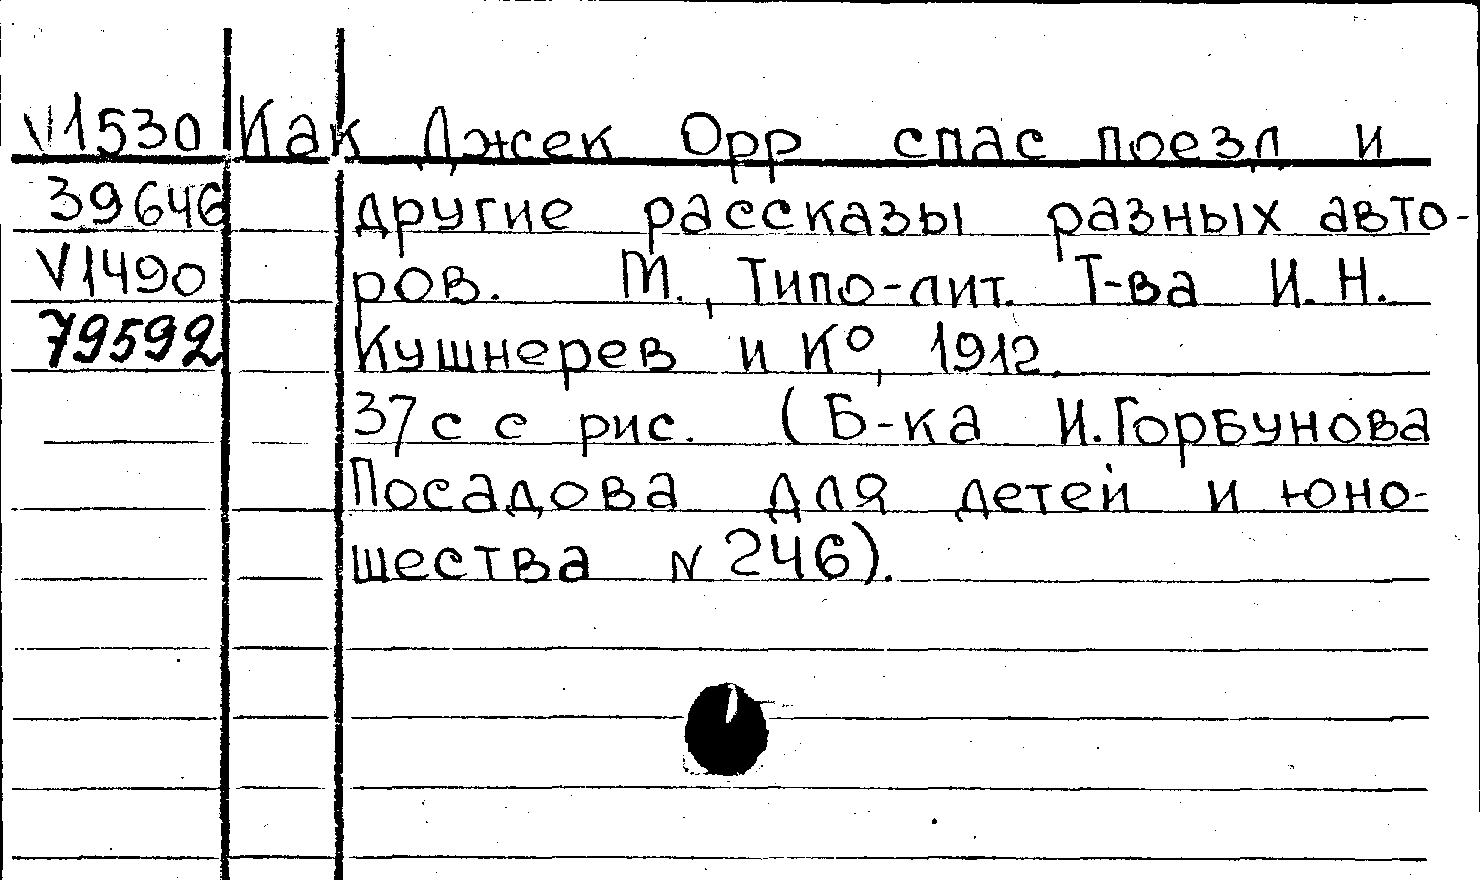 V1530 Как Джек Орр спас поезд и
39646 другие рассказы разных авто-
V1490 ров. М., Типо-лит. Т-ва И. Н.
79592 Кушнерев и К°, 1912.
37с с рис. (Б-ка И.Горбунова
Посадова для детей и юно-
шества N 246).